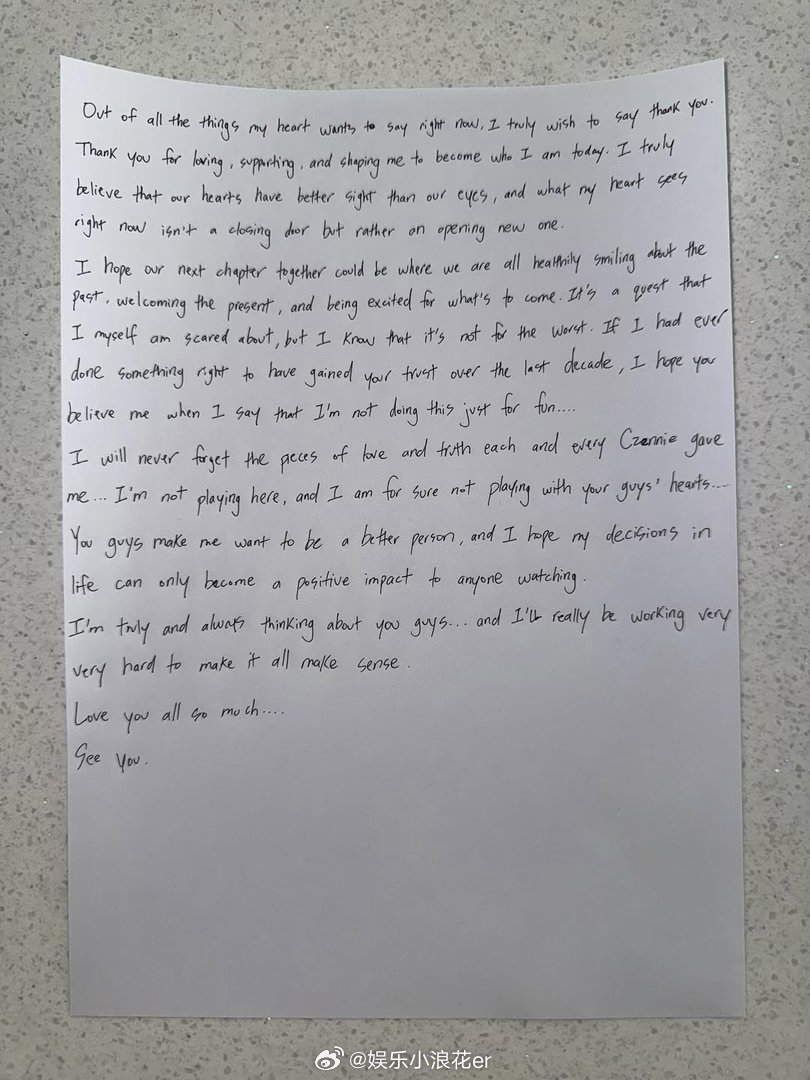 Out of all the things my heart wants to say right now, I truly wish to say thank you.
Thank you for loving, supporting, and shaping me to become who I am today. I truly
believe that our hearts have better sight than our eyes, and what my heart sees
right now isn't a closing door but rather an opening new one.
I hope our next chapter together could be where we are all healthily smiling about the
past, welcoming the present, and being excited for what's to come. It's a quest that
I myself am scared about, but I know that it's not for the worst. If I had ever
done something right to have gained your trust over the last decade, I hope you
believe me when I say that I'm not doing this just for fun....
I will never forget the pieces of love and truth each and every Czennie gave
me... I'm not playing here, and I am for sure not playing with your guys' hearts....
You guys make me want to be a better person, and I hope my decisions in
life can only become a positive impact to anyone watching.
I'm truly and always thinking about you guys... and I'll really be working very
very hard to make it all make sense.
Love you all so much....
See you.
@娱乐小浪花er